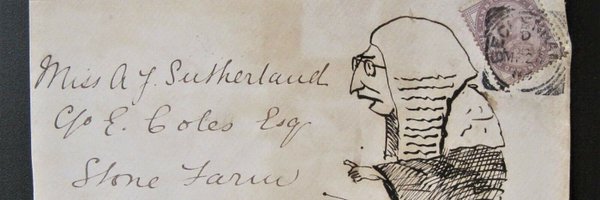 Miss A J. Sutherland
C/o E. Coles Esq
Stone Farm